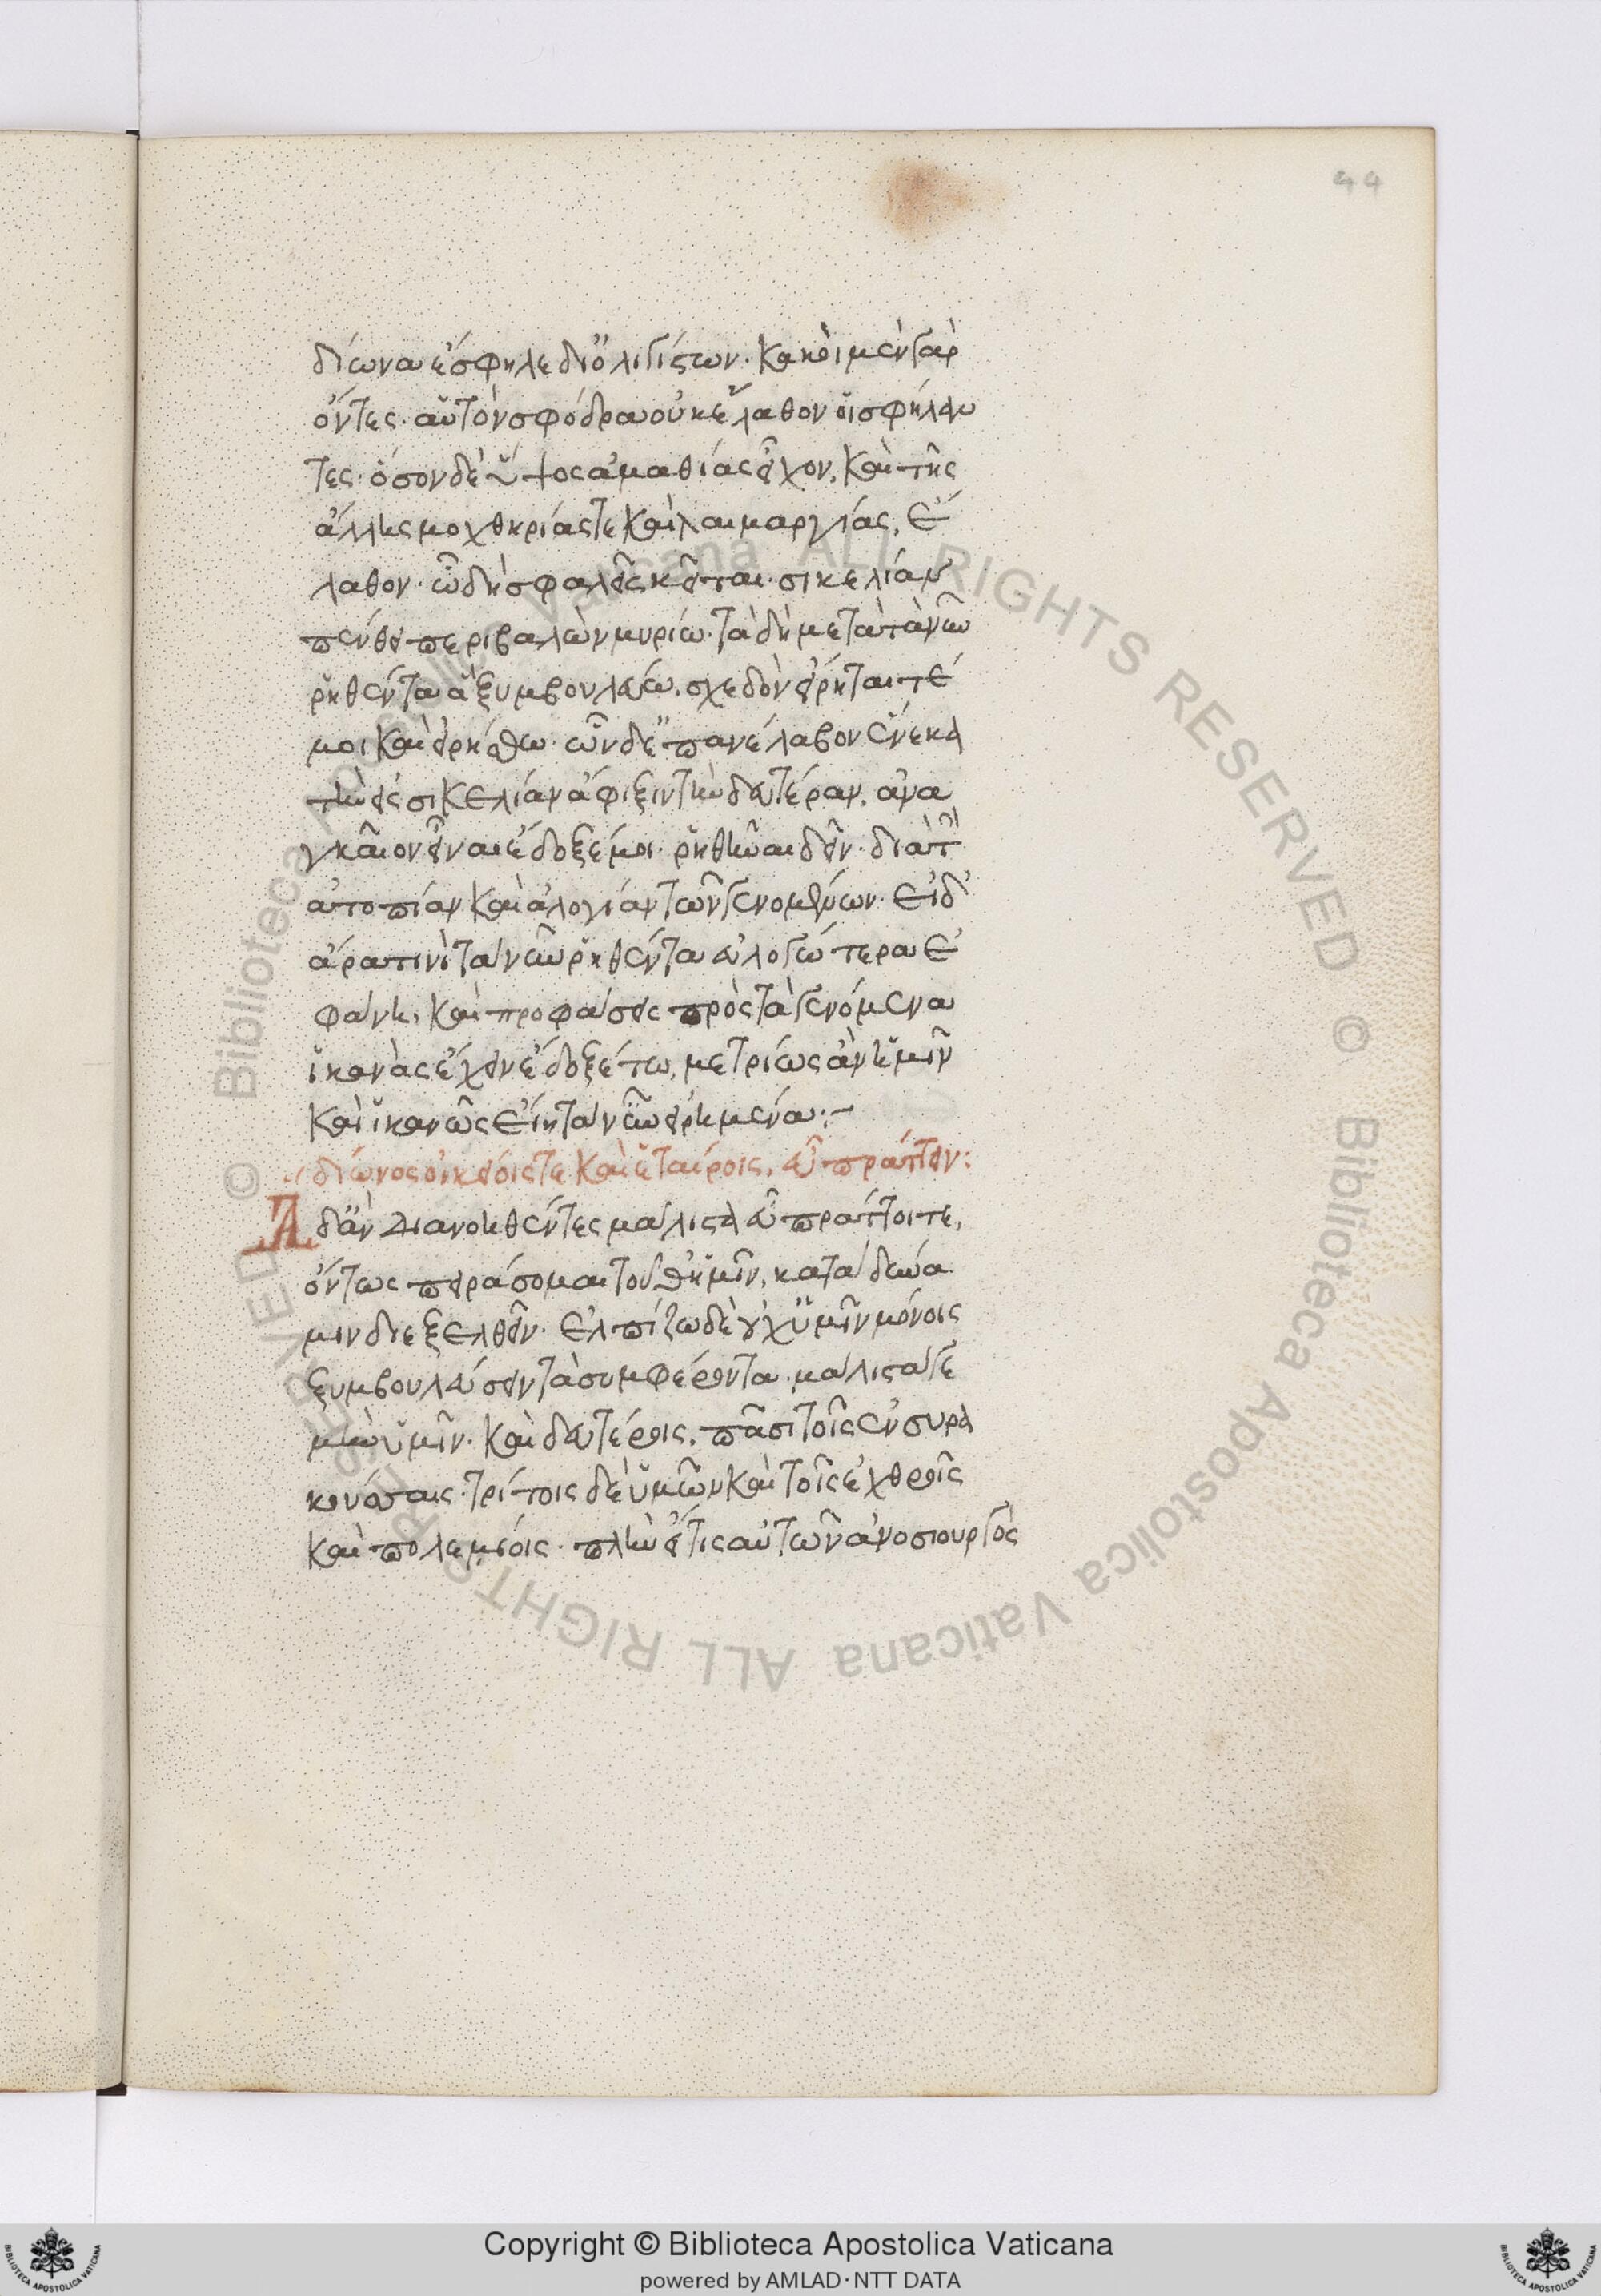 44
δίωνα ἔσφηλε διολιγίστων· κακοὶ μὲν γὰρ
ὄντες· αὐτὸν σφόδρα οὐκ ἔλαθον οἱ σφήλαν
τες· ὅσον δὲ ὕψος ἀμαθίας εἶχον, καὶ τῆς
ἄλλης μοχθηρίας τε καὶ λαιμαργίας, ἔ
λαθον· ᾧ δὴ σφαλεὶς κεῖται· σικελίαν
πένθει περιβαλὼν μυρίω· τὰ δὴ μετὰ τὰ νῦν
ῥηθέντα ἃ ξυμβουλεύω, σχεδὸν εἴρηταί τέ
μοι καὶ εἰρήσθω· ὧν δ' ἐπανέλαβον ἕνεκα
τὴν εἰς σικελίαν ἄφιξιν τὴν δευτέραν, ἀνα
γκαῖον εἶναι ἔδοξέ μοι· ῥηθῆναι δεῖν· διὰ τὴν
ἀτοπίαν καὶ ἀλογίαν τῶν γενομένων· εἰ δ'
ἄρα τινὶ τὰ νῦν ῥηθέντα εὐλογώτερα ἐ
φάνη, καὶ προφάσεις πρὸς τὰ γενόμενα
ἱκανὰς ἔχειν ἔδοξέ τω, μετρίως ἂν ἡμῖν
καὶ ἱκανῶς εἴη τὰ νῦν εἰρημένα:~
δίωνος οἰκείοις τε καὶ ἑταίροις, εὖ πράττειν:
Ἃ δ' ἂν διανοηθέντες μάλιστα εὖ πράττοιτε,
ὄντως πειράσομαι τοῦθ' ἡμῖν, κατὰ δύνα
μιν διεξελθεῖν· ἐλπίζω δὲ οὐχ ὑμῖν μόνοις
ξυμβουλεύσειν τὰ συμφέροντα· μάλιστά γε
μὴν ὑμῖν· καὶ δευτέροις, πᾶσι τοῖς ἐν συρα
κούσαις· τρίτοις δὲ ὑμῶν καὶ τοῖς ἐχθροῖς
καὶ πολεμίοις· πλὴν εἴ τις αὐτῶν ἀνοσιουργὸς
Copyright © Biblioteca Apostolica Vaticana
powered by AMLAD·NTT DATA
© Biblioteca Apostolica Vaticana ALL RIGHTS RESERVED
© Biblioteca Apostolica Vaticana ALL RIGHTS RESERVED